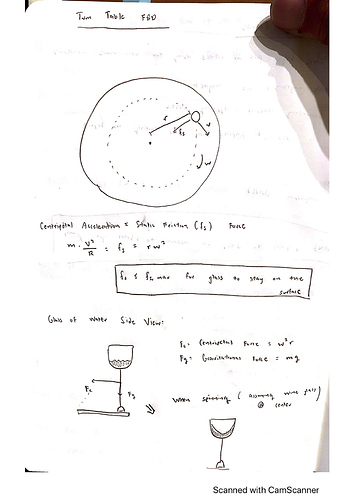 Turn Table FBD
r
fs
v
w
Centripetal Acceleration = Static Friction (fs) Force
m · V²/R = fs = r w²
fs ≤ fs max for glass to stay on the
surface
Glass of Water Side View:
Fc = Centripetal Force = w² r
Fg = Gravitational Force = mg
Fc
Fg
When spinning ( assuming wine glass)
@ center
Scanned with CamScanner